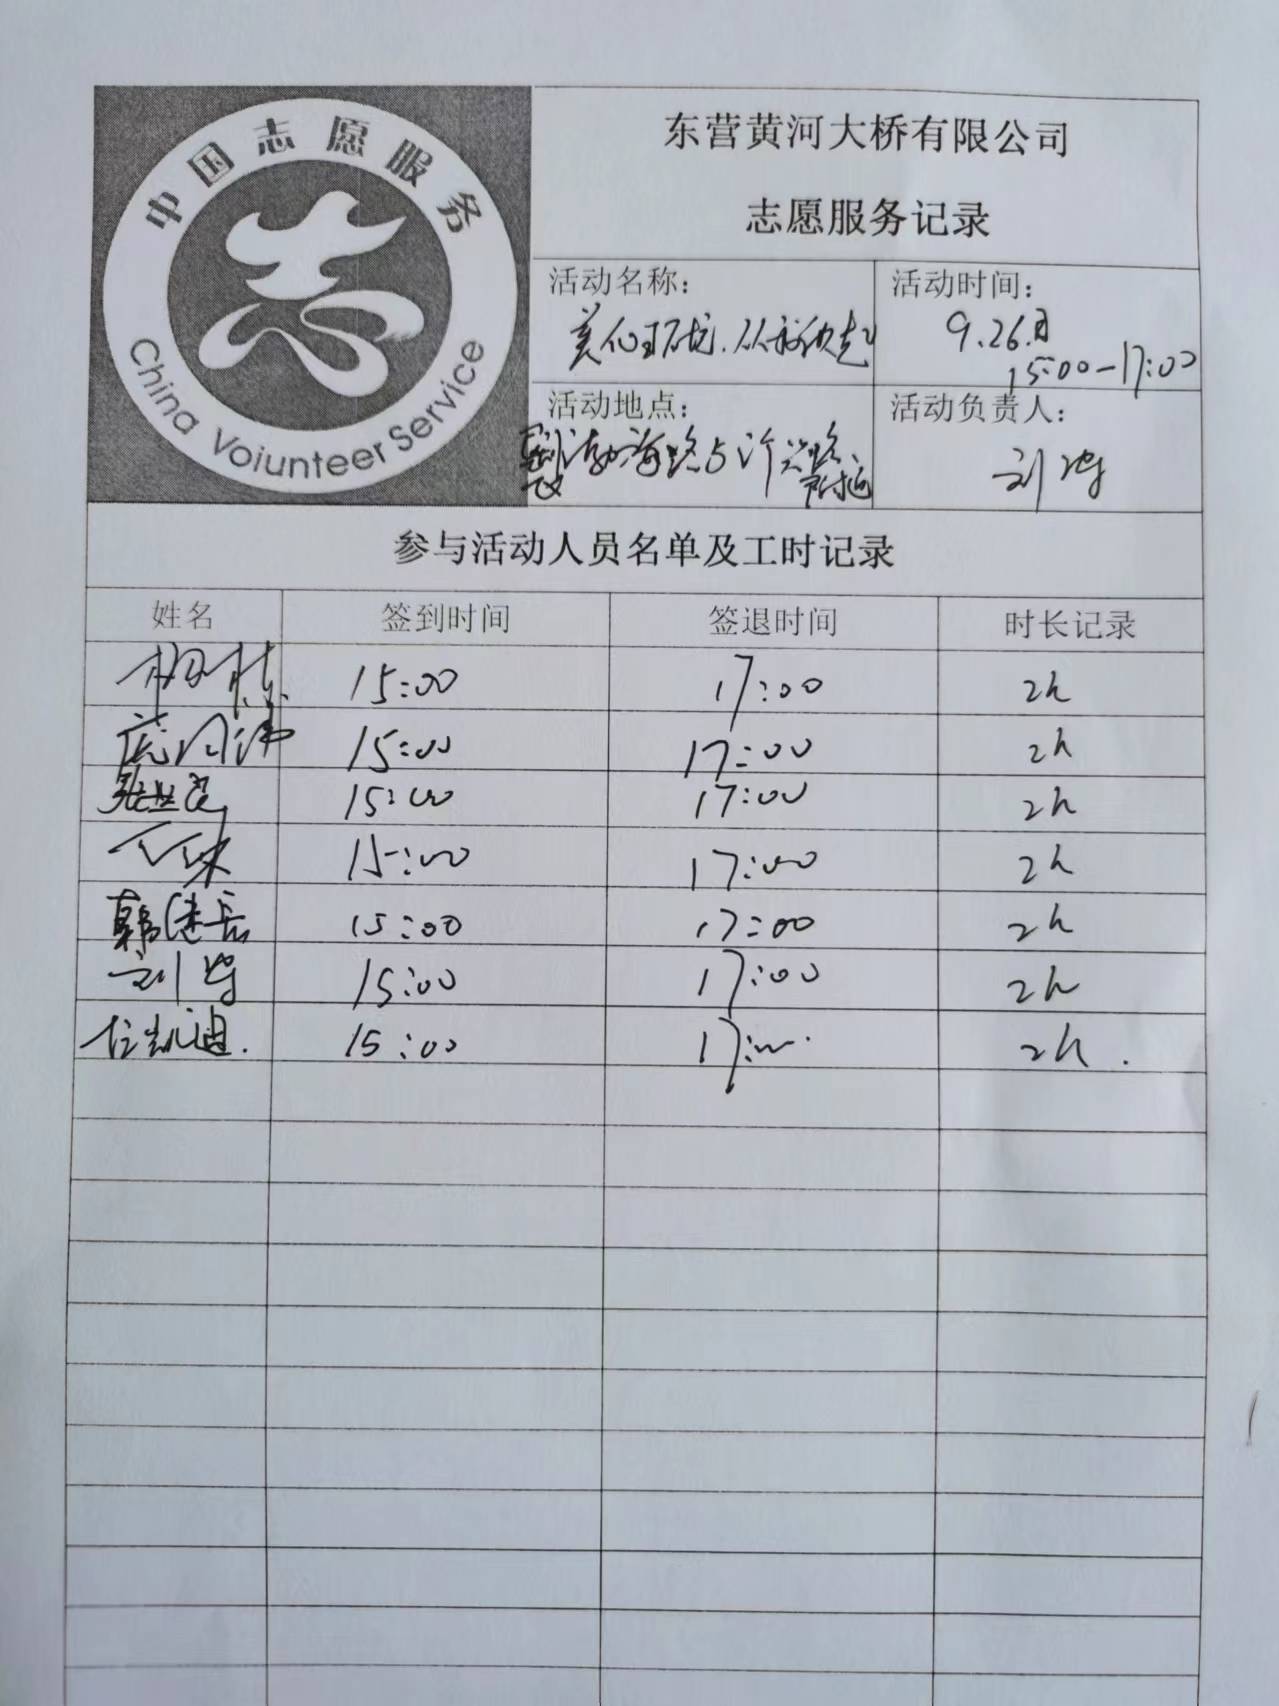 中国志愿服务
China Voiunteer Service
东营黄河大桥有限公司
志愿服务记录
活动名称：
活动时间：
9.26日
15:00-17:00
活动地点：
渤海路与
活动负责人：
刘
参与活动人员名单及工时记录
姓名 签到时间 签退时间 时长记录
15:00 17:00 2h
15:00 17:00 2h
15:00 17:00 2h
15:00 17:00 2h
韩建长 15:00 17:00 2h
刘 15:00 17:00 2h
任凯迪. 15:00 17:00. 2h.